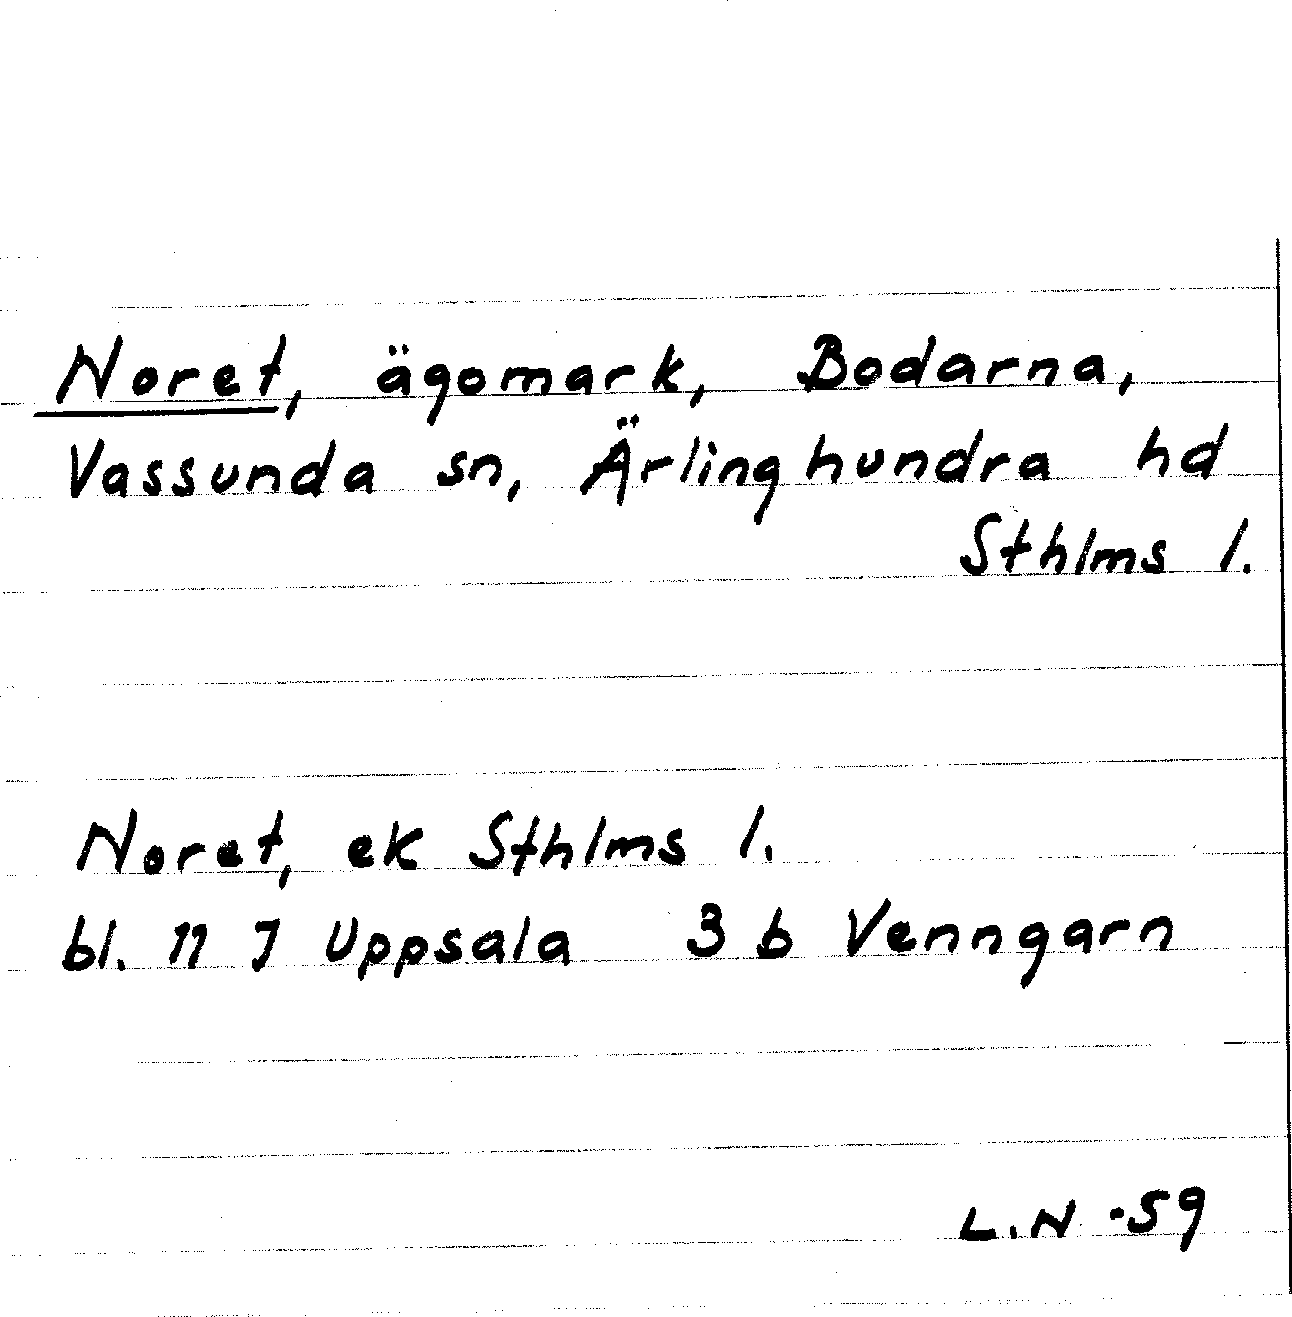 Noret, ägomark, Bodarna,
Vassunda sn, Ärlinghundra hd
Sthlms l.
Noret, ek Sthlms l.
bl. 11 J Uppsala 3 b Venngarn
L.N -59